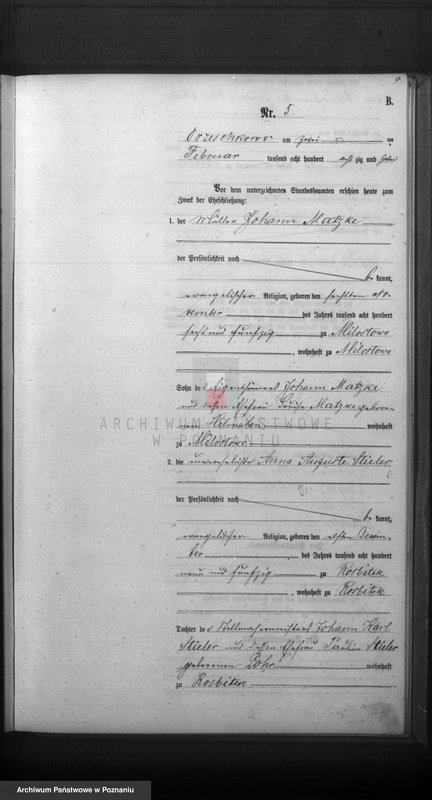 B.
Nr. 5.
Orzeschkowo am zwei ten
Februar tausend acht hundert acht zig und zwei
Vor dem unterzeichneten Standesbeamten erschien heute zum
Zweck der Eheschließung:
1. der Müller Johann Matzke
der Persönlichkeit nach
be kannt,
evangelischer Religion, geboren den sechsten No-
vember des Jahres tausend acht hundert
sechs und fünfzig zu Milostowo
, wohnhaft zu Milostowo
Sohn des Eigenthümers Johann Matzke
und dessen Ehefrau Louise Matzke geborenen
wohnhaft
zu Milostowo
2. die unverehelichte Anna Auguste Stieler
der Persönlichkeit nach
be kannt,
evangelischer Religion, geboren den elften Dezem-
ber des Jahres tausend acht hundert
neun und fünfzig zu Rosbitek
, wohnhaft zu Rosbitek
Tochter des Stellmachermeisters Johann Karl
Stieler und dessen Ehefrau Pauline Stieler
geborenen Lohr wohnhaft
zu Rosbitek
ARCHIWUM PAŃSTWOWE
W POZNANIU
Archiwum Państwowe w Poznaniu